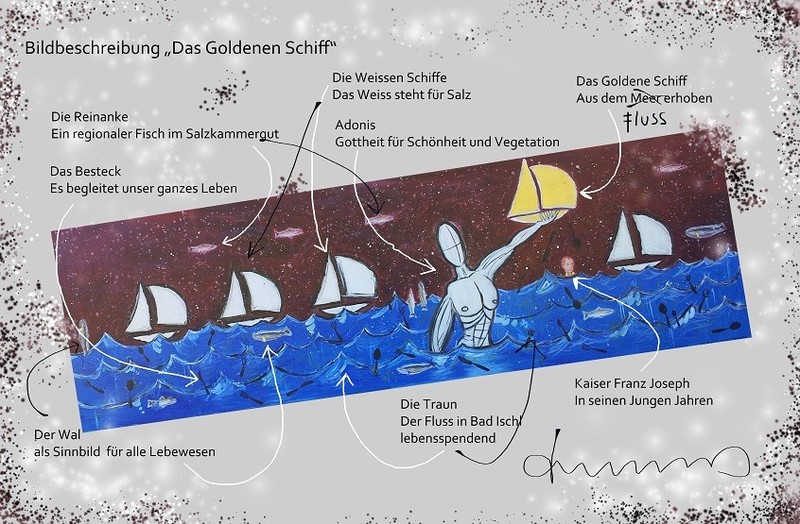 Bildbeschreibung „Das Goldenen Schiff“
Die Weissen Schiffe
Das Weiss steht für Salz
Das Goldene Schiff
Aus dem Meer erhoben
Fluss
Die Reinanke
Ein regionaler Fisch im Salzkammergut
Adonis
Gottheit für Schönheit und Vegetation
Das Besteck
Es begleitet unser ganzes Leben
Kaiser Franz Joseph
In seinen Jungen Jahren
Die Traun
Der Fluss in Bad Ischl
lebensspendend
Der Wal
als Sinnbild für alle Lebewesen